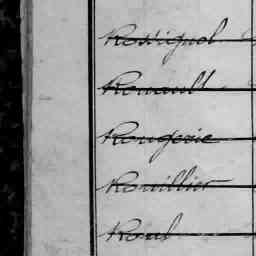 Rossignol
Rouault
Rougerie
Rouillier
Roul